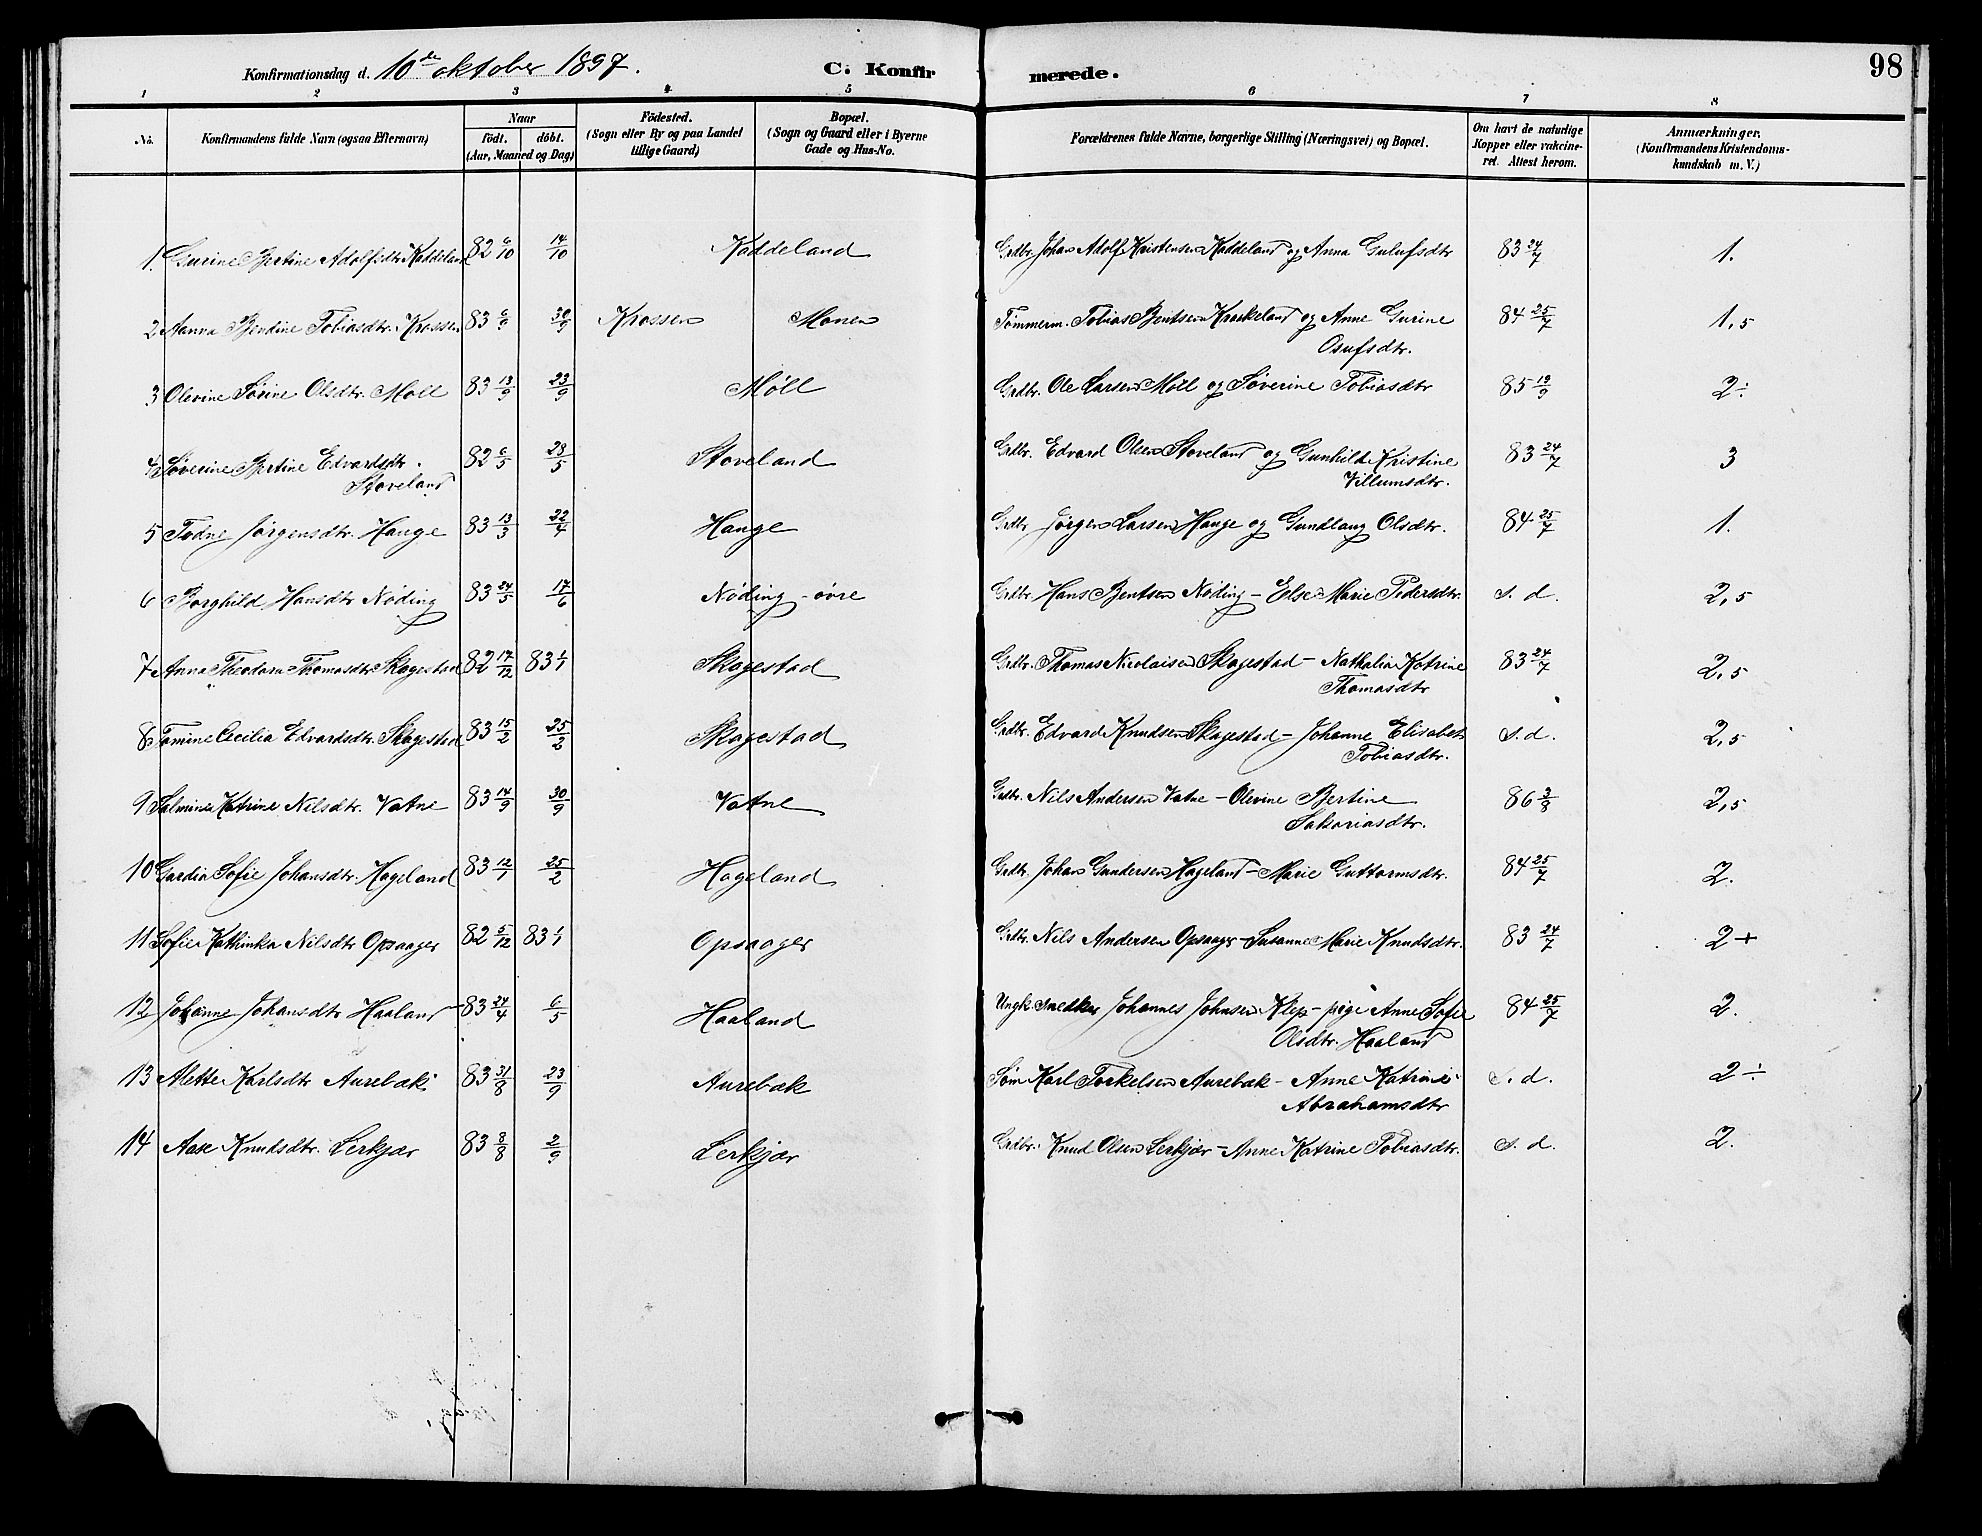 Konfirmationsdag d. 10de oktober 1897. C. Konfirmerede. 98
1 2 3 4 5 6 7 8
No. Konfirmandens fulde Navn (ogsaa Efternavn) Naar födt. döbt. (Aar, Maaned og Dag) Födested. (Sogn eller By og paa Landet tillige Gaard) Bopæl. (Sogn og Gaard eller i Byerne Gade og Hus-No. Forældrenes fulde Navne, borgerlige Stilling (Næringsvei) og Bopæl. Om havt de naturlige Kopper eller vakcineret. Attest herom. Anmærkninger. (Konfirmandens Kristendomskundskab m. V.)
1. Gurine Bertine Adolfsdtr. Koddeland 82 6/10 14/10 Koddeland Grdbr. Johan Adolf Kristensen Koddeland og Anna Gulufsdtr 83 24/7 1.
2 Aanna Bendine Tobiasdtr. Krossen 83 6/9 30/9 Krossen Monen Tømmerm. Tobias Bentsen Kraakeland og Anne Gurine
Osufsdtr. 84 25/7 1,5
3 Olevine Sørine Olsdtr. Möll 83 13/9 23/9 Möll Grdbr. Ole Larsen Möll og Søverine Tobiasdtr 85 19/9 2÷
4 Søverine Bertine Edvardsdtr.
Stoveland 82 6/5 28/5 Stoveland Grdbr. Edvard Olsen Stoveland og Gunhilde Kristine
Villumsdtr. 83 24/7 3
5 Todne Jørgensdtr. Hauge 83 13/3 22/4 Hauge Grdbr Jørgen Larsen Hauge og Gundlaug Olsdtr. 84 25/7 1.
6 Borghild Hansdtr Nöding 83 24/5 17/6 Nöding - övre Grdbr Hans Bentsen Nöding - Else Marie Pedersdtr. s. d. 2,5
7 Anna Theodora Thomasdtr Skogestad 82 17/12 83 1/1 Skogestad Grdbr. Thomas Nicolaisen Skogestad - Nathalia Katrine
Thomasdtr 83 24/7 2,5
8 Tomine Cecilia Edvardsdtr. Skogestad 83 15/2 25/2 Skogestad Grdbr. Edvard Knudsen Skogestad - Johanne Elisabet
Tobiasdtr. s. d. 2,5
9 Salmine Katrine Nilsdtr. Vatne 83 14/9 30/9 Vatne Grdbr. Nils Andersen Vatne - Olevine Bertine
Sakariasdtr. 86 3/8 2,5
10 Gardia Sofie Johansdtr. Hageland 83 12/1 25/2 Hageland Grdbr. Johan Gundersen Hageland - Marie Guttormsdtr. 84 25/7 2.
11 Sofie Kathinka Nilsdtr Opsaager 82 5/12 83 1/1 Opsaager Grdbr. Nils Andersen Opsaager - Susanne Marie Knudsdtr. 83 24/7 2+
12 Johanne Johansdtr Haaland 83 24/4 6/5 Haaland Ungk. snedker Johannes Johnsen Klep - pige Anne Sofie
Olsdtr. Haaland 84 25/7 2.
13 Mette Karlsdtr Aurebæk 83 31/8 23/9 Aurebæk Søm Karl Torkelsen Aurebæk - Anne Katrine
Abrahamsdtr s. d. 2÷
14 Aase Knudsdtr. Lerkjær 83 8/8 2/9 Lerkjær Grdbr. Knud Olsen Lerkjær - Anne Katrine Tobiasdtr. s. d. 2.